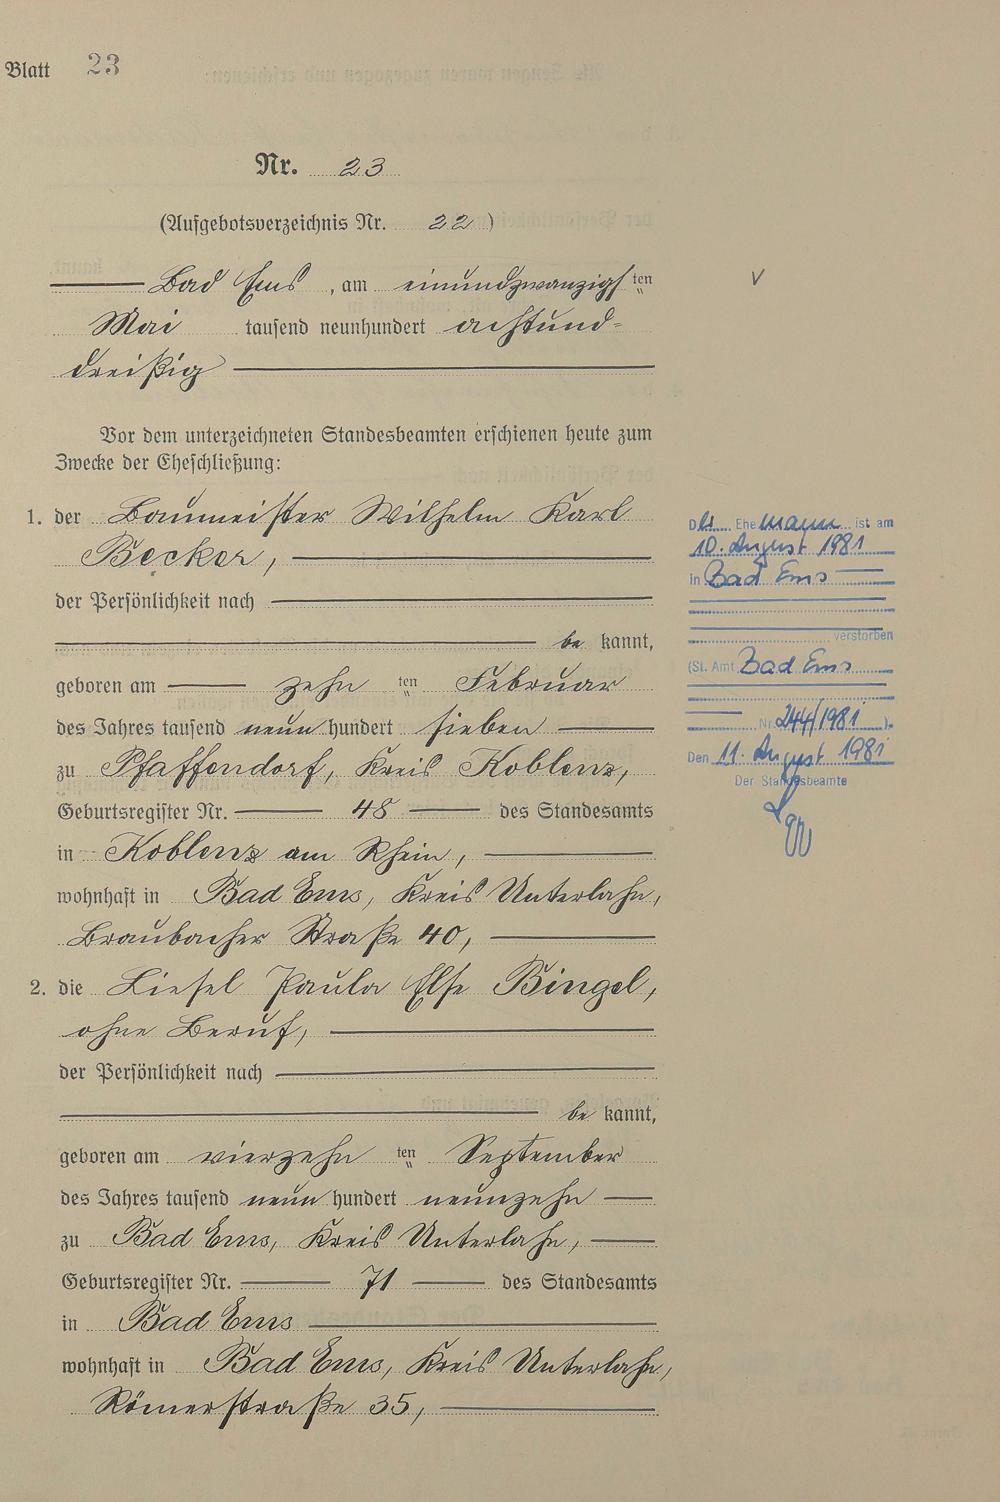 Blatt 23
Nr. 23
(Aufgebotsverzeichnis Nr. 22)
Bad Ems, am einundzwanzigsten
Mai tausend neunhundert achtund-
dreißig
Vor dem unterzeichneten Standesbeamten erschienen heute zum
Zwecke der Eheschließung:
1. der Baumeister Wilhelm Karl
Becker,
der Persönlichkeit nach
be kannt,
geboren am zehn ten Februar
des Jahres tausend neun hundert sieben
zu Pfaffendorf, Kreis Koblenz,
Geburtsregister Nr. 48 des Standesamts
in Koblenz am Rhein,
wohnhaft in Bad Ems, Kreis Unterlahn,
Braubacher Straße 40,
2. die Liesel Paula Else Bingel,
ohne Beruf,
der Persönlichkeit nach
be kannt,
geboren am vierzehn ten September
des Jahres tausend neun hundert neunzehn
zu Bad Ems, Kreis Unterlahn,
Geburtsregister Nr. 71 des Standesamts
in Bad Ems
wohnhaft in Bad Ems, Kreis Unterlahn,
Römerstraße 35,
Der Ehemann ist am
10. August 1981
in Bad Ems
verstorben
(St. Amt Bad Ems
Nr. 244/1981 ).
Den 11. August 1981
Der Standesbeamte